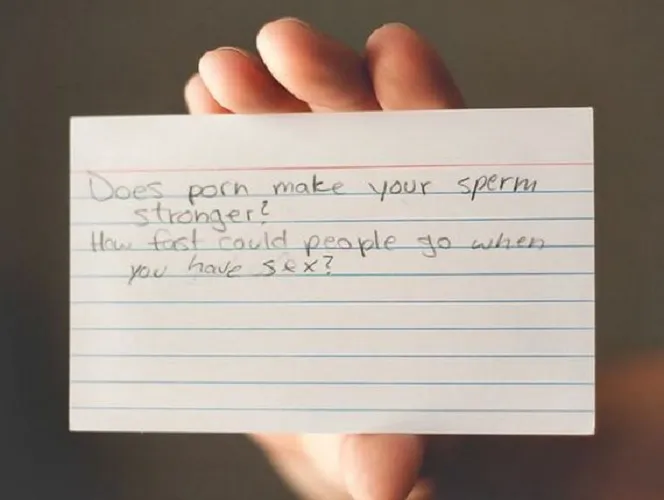 Does porn make your sperm
stronger?
How fast could people go when
you have sex?